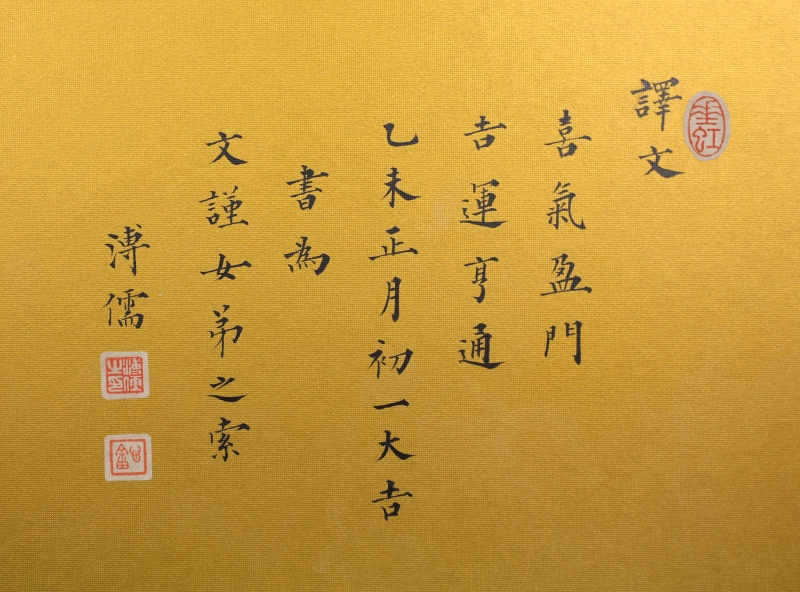 譯文
喜氣盈門
吉運亨通
乙未正月初一大吉
書為
文謹女弟之索
溥儒